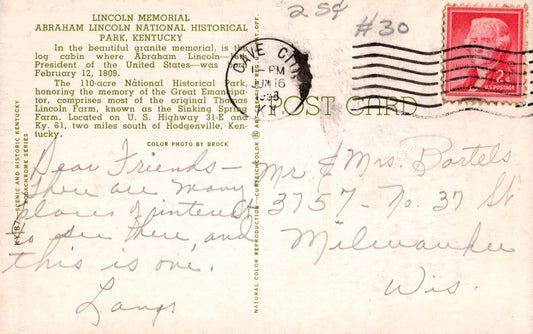 LINCOLN MEMORIAL
ABRAHAM LINCOLN NATIONAL HISTORICAL
PARK, KENTUCKY
In the beautiful granite memorial, is the
log cabin where Abraham Lincoln
President of the United States—was
February 12, 1809.
The 110-acre National Historical Park,
honoring the memory of the Great Emancipator,
comprises most of the original Thomas
Lincoln Farm, known as the Sinking Spring
Farm. Located on U. S. Highway 31-E and
Ky. 61, two miles south of Hodgenville, Ken-
tucky.
COLOR PHOTO BY BROCK
Dear Friends—
There are many
places of interest
to see here, and
this is one.
Langs
SCENIC AND HISTORIC KENTUCKY
NATURAL COLOR REPRODUCTION
25¢
#30
CAVE CITY
PM
JUN 16
POST CARD
2¢
U.S. POSTAGE
Mr & Mrs. Bartels
3757 - No. 37 St
Milwaukee
Wis.